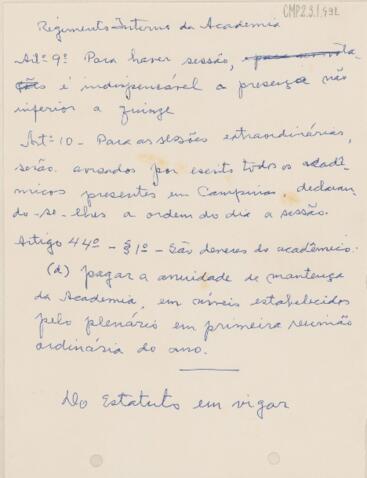 CMP2.3.1.492
Regimento Interno da Academia
Art.º 9º Para haver sessão, ~~para a vota-~~
~~ção~~ é indispensável a presença não
inferior a quinze
Art.º 10 - Para as sessões extraordinárias,
serão avisados por escrito todos os acadê-
micos presentes em Campinas, declaran-
do-se-lhes a ordem do dia a sessão.
Artigo 44º - § 1º - São deveres do acadêmico:
(d) pagar a anuidade de mantença
da Academia, em níveis estabelecidos
pelo plenário em primeira reunião
ordinária do ano.
Do Estatuto em vigor